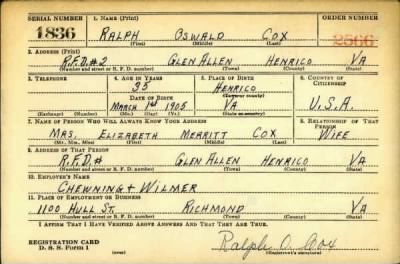 SERIAL NUMBER 1. NAME (Print) ORDER NUMBER
1836 RALPH OSWALD COX 2566
(First) (Middle) (Last)
2. ADDRESS (Print)
R.F.D.#2 GLEN ALLEN HENRICO VA
(Number and street or R. F. D. number) (Town) (County) (State)
3. TELEPHONE 4. AGE IN YEARS 5. PLACE OF BIRTH 6. COUNTRY OF CITIZENSHIP
35 HENRICO
DATE OF BIRTH (Town or county)
MARCH 1st 1905 VA U.S.A.
(Exchange) (Number) (Mo.) (Day) (Yr.) (State or country)
7. NAME OF PERSON WHO WILL ALWAYS KNOW YOUR ADDRESS 8. RELATIONSHIP OF THAT PERSON
MRS. ELIZABETH MERRITT COX WIFE
(Mr., Mrs., Miss) (First) (Middle) (Last)
9. ADDRESS OF THAT PERSON
R.F.D.# GLEN ALLEN HENRICO VA
(Number and street or R. F. D. number) (Town) (County) (State)
10. EMPLOYER'S NAME
CHEWNING + WILMER
11. PLACE OF EMPLOYMENT OR BUSINESS
1100 HULL ST. RICHMOND VA
(Number and street or R. F. D. number) (Town) (County) (State)
I AFFIRM THAT I HAVE VERIFIED ABOVE ANSWERS AND THAT THEY ARE TRUE.
REGISTRATION CARD
D. S. S. Form 1 (over) Ralph O. Cox
(Registrant's signature)